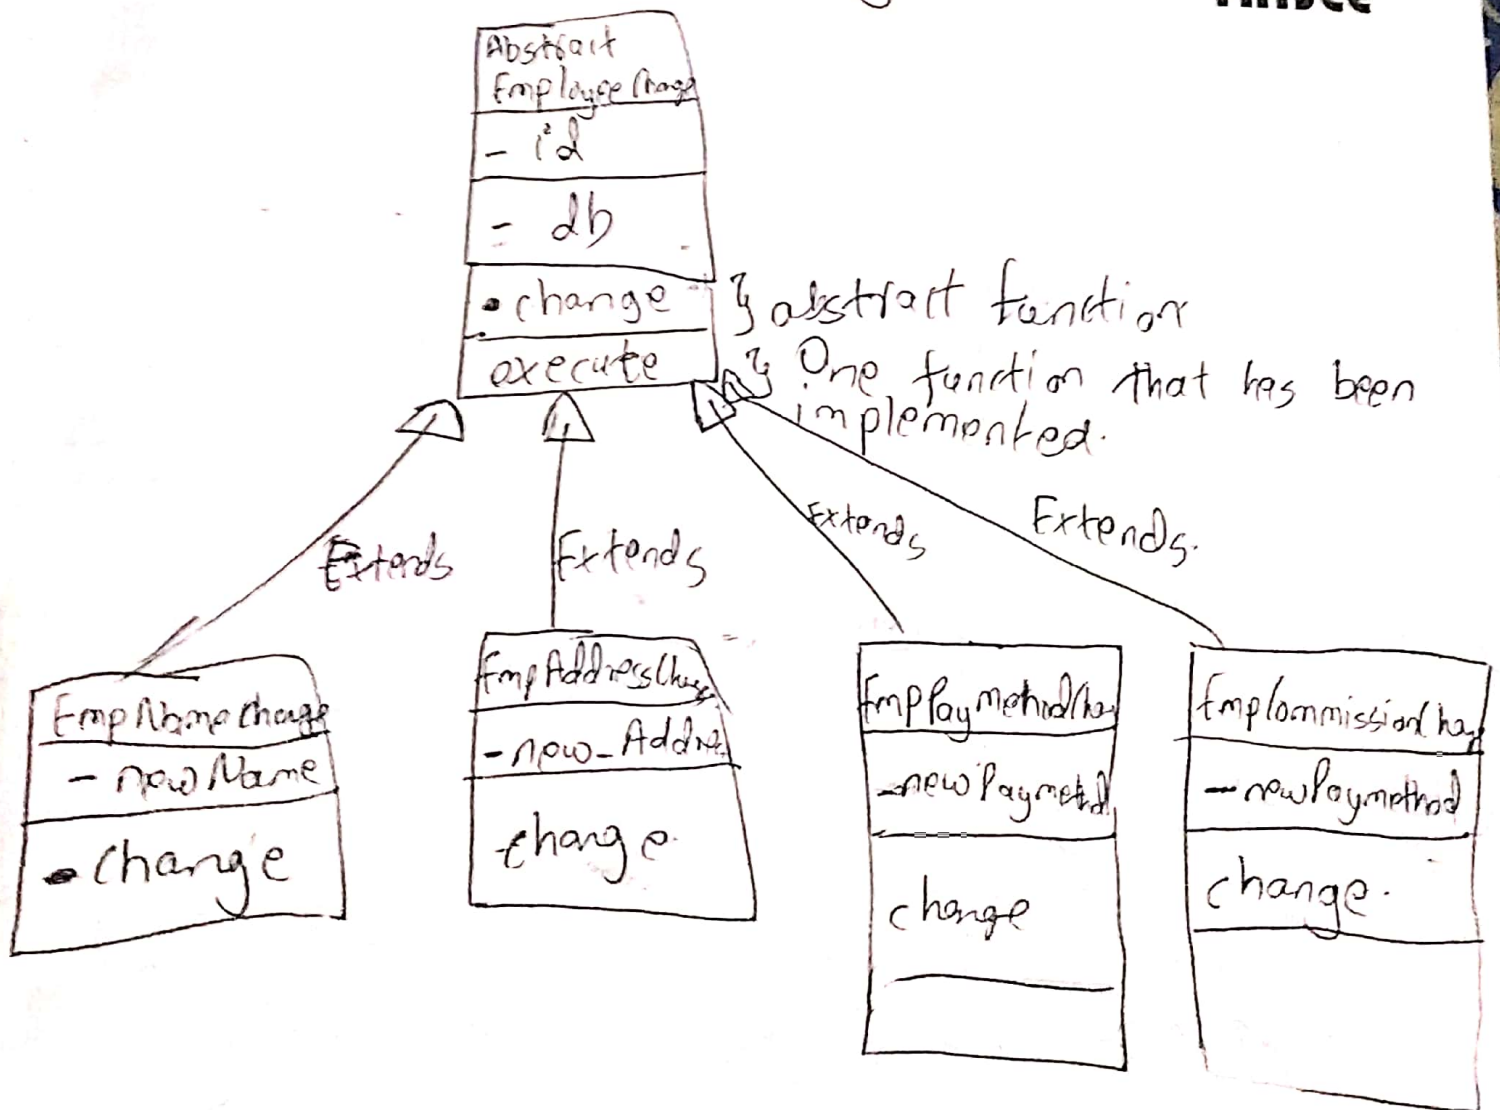 Abstract
Employee Change
- id
- db
• change } abstract function
execute } One function that has been
implemented.
Extends
Extends
Extends
Extends.
EmpNameChange
- newName
• change
EmpAddressChange
- new_Addre
- change.
EmpPaymethodCha
- newPaymethod
change
EmpCommissionChag
- newPaymethod
change.